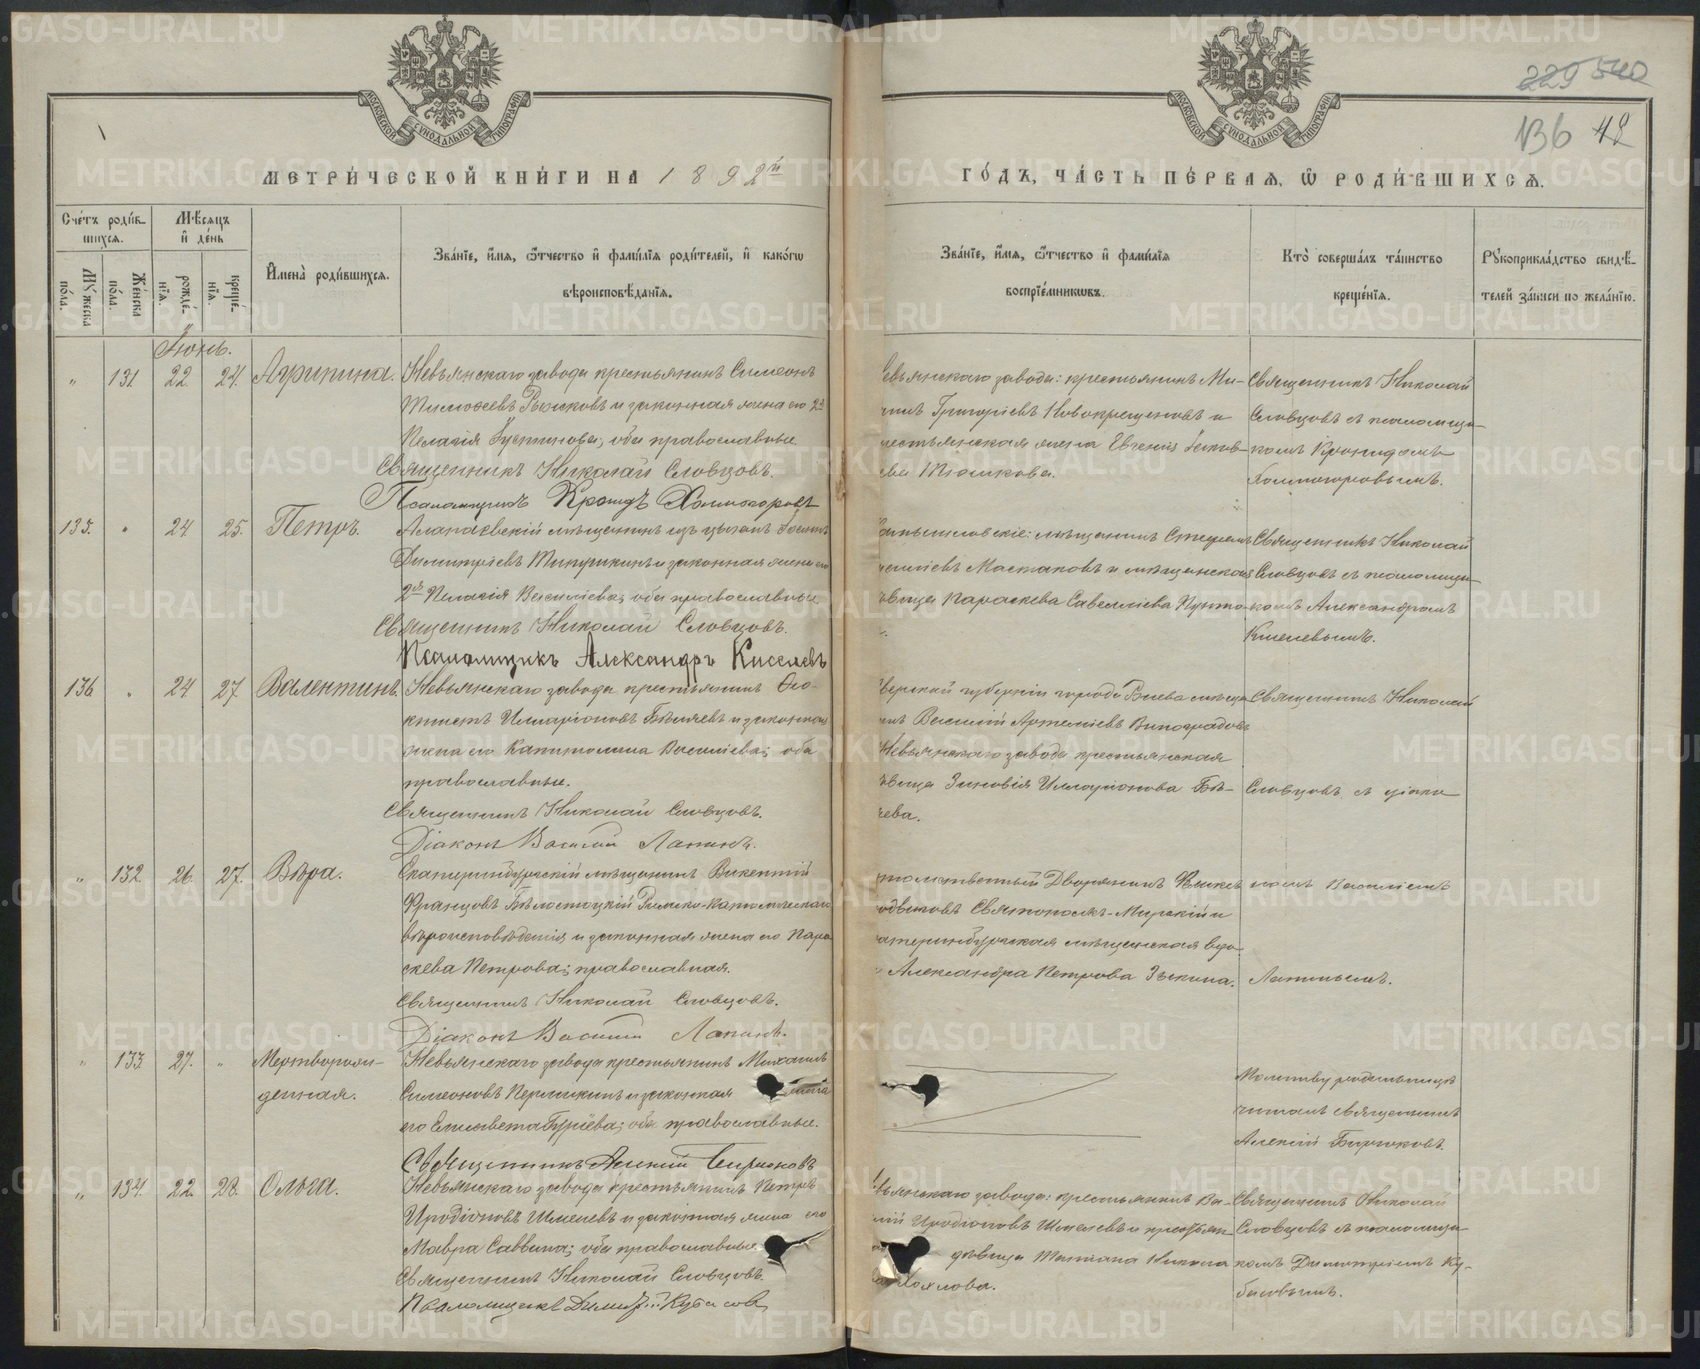 229 540
136 42
МЕТРИ́ЧЕСКОЙ КНИ́ГИ НА 1892й
ГО́ДЪ, ЧА́СТЬ ПЕ́РВАЯ, Ѡ РОДИ́ВШИХСЯ.
МОСКОВСКОЙ СѴНОДАЛЬНОЙ ТИПОГРАФІИ
МОСКОВСКОЙ СѴНОДАЛЬНОЙ ТИПОГРАФІИ
Сче́тъ роди́в-
шихся.
Му́жеска по́ла.
Же́нска по́ла.
Мѣ́сяцъ
и́ де́нь
рожде́нїя.
креще́нїя.
И҆мена̀ роди́вшихся.
Зва́нїе, и҆́мя, ѻ҆́тчество и҆ фами́лїя роди́телей, и҆ како́гѡ
вѣроисповѣ́данїя.
Зва́нїе, и҆́мя, ѻ҆́тчество и҆ фами́лїя
воспрїе́мникѡвъ.
Кто̀ соверша́лъ та́инство
креще́нїя.
Рꙋкоприкла́дство свидѣ́-
телей за́писи по жела́нїю.
Іюнь.
" 131 22 24. Агрипина.
Невьянскаго завода крестьянинъ Симеонъ
Тимоѳеевъ и законная жена его 2я
Пелагія Іустинова; оба православные.
Священникъ Николай Словцовъ.
Псаломщикъ Кронидъ Холмогоровъ
Невьянскаго завода: крестьянинъ Ми-
Григоріевъ Новокрещеновъ и
крестьянская жена Евгенія
Тюшкова.
Священникъ Николай
Словцовъ съ псаломщи-
комъ Кронидомъ
Холмогоровымъ.
135. " 24 25. Петръ.
Алапаевскій мѣщанинъ изъ
Димитріевъ и законная жена его
2я Пелагія Василіева; оба православные
Священникъ Николай Словцовъ.
Псаломщикъ Александръ Киселевъ
мѣщанинъ Стефанъ
и мѣщанская
дѣвица Параскева Савелліева
Священникъ Николай
Словцовъ съ псаломщи-
комъ Александромъ
Киселевымъ.
136 " 24 27 Валентинъ.
Невьянскаго завода крестьянинъ Ѳео-
ктистъ Илларіоновъ Бѣлячевъ и законная
жена его Капитолина Василіева; оба
православные.
Священникъ Николай Словцовъ.
Діаконъ Василій Лапинъ.
губерніи города
Василій Артеміевъ Виноградовъ
Невьянскаго завода крестьянская
дѣвица Зиновія Илларіонова Бѣ-
чева.
Священникъ Николай
Словцовъ съ діако-
" 132 26. 27. Вѣра.
Екатеринбургскій мѣщанинъ Викентій
Францовъ Бѣлостоцкій Римско-Католическаго
вѣроисповѣданія и законная жена его Пара-
скева Петрова; православная.
Священникъ Николай Словцовъ.
Діаконъ Василій Лапинъ.
Дворянинъ
Святополкъ-Мирскій и
Екатеринбургская мѣщанская вдо-
Александра Петрова Зыкина.
номъ Василіемъ
Лапинымъ.
" 133 27. " Мертворож-
денная.
Невьянскаго завода крестьянинъ Михаилъ
Симеоновъ Пермикинъ и законная жена
его Елисавета Гуріева; оба православные.
Священникъ Алексій Бирюковъ
Молитву родильницѣ
читалъ священникъ
Алексій Бирюковъ.
" 134. 22. 28. Ольга.
Невьянскаго завода крестьянинъ Петръ
Иродіоновъ Шмелевъ и законная жена его
Мавра Саввина; оба православные.
Священникъ Николай Словцовъ.
Псаломщикъ Димитрій Кубасовъ
Невьянскаго завода: крестьянинъ Ва-
силій Иродіоновъ Шмелевъ и крестьян-
дѣвица Татіана Никола-
Священникъ Николай
Словцовъ съ псаломщи-
комъ Димитріемъ Ку-
басовымъ.
METRIKI.GASO-URAL.RU